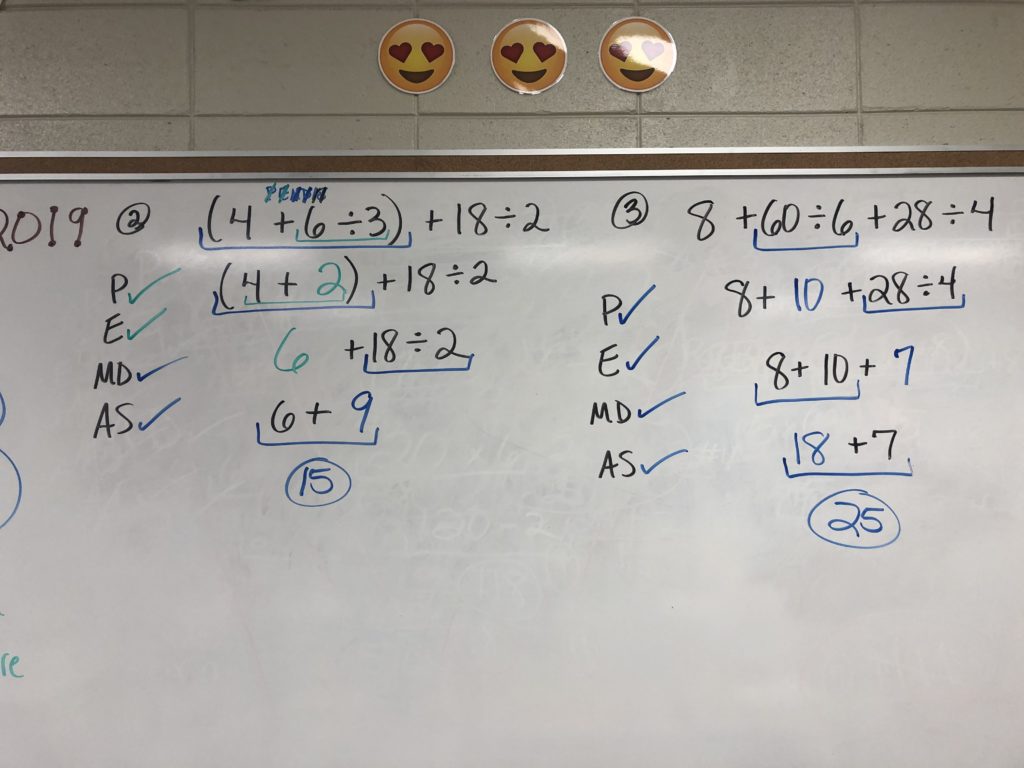 2019
② (4 + 6 ÷ 3) + 18 ÷ 2
P✓ (4 + 2) + 18 ÷ 2
E✓ 6 + 18 ÷ 2
MD✓
AS✓ 6 + 9
15
③ 8 + 60 ÷ 6 + 28 ÷ 4
P✓ 8 + 10 + 28 ÷ 4
E✓ 8 + 10 + 7
MD✓
AS✓ 18 + 7
25
re